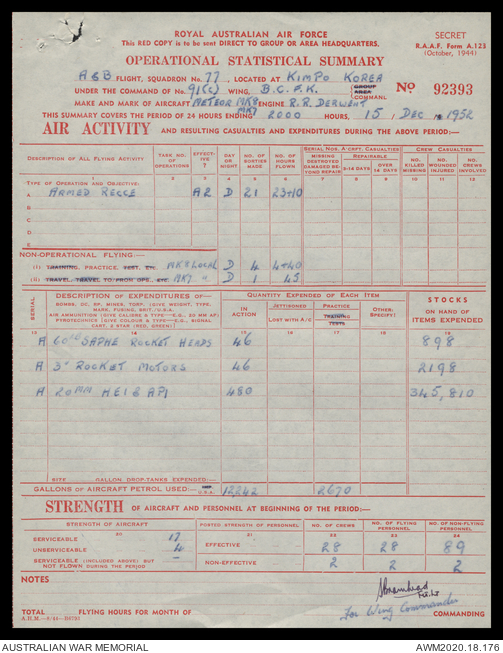 ROYAL AUSTRALIAN AIR FORCE
This RED COPY is to be sent DIRECT TO GROUP OR AREA HEADQUARTERS.
SECRET
R.A.A.F. Form A.125
(October, 1944)
OPERATIONAL STATISTICAL SUMMARY
A&B FLIGHT, SQUADRON No. 77, LOCATED AT KIMPO KOREA
UNDER THE COMMAND OF No. 91(C) WING, B.C.F.K. GROUP AREA COMMAND. No 92393
MAKE AND MARK OF AIRCRAFT METEOR MK8 MK7 ENGINE R.R. DERWENT
THIS SUMMARY COVERS THE PERIOD OF 24 HOURS ENDING 2000 HOURS, 15, DEC 1952
AIR ACTIVITY AND RESULTING CASUALTIES AND EXPENDITURES DURING THE ABOVE PERIOD:—
DESCRIPTION OF ALL FLYING ACTIVITY TASK NO. OF OPERATIONS EFFECTIVE ? DAY OR NIGHT NO. OF SORTIES MADE NO. OF HOURS FLOWN SERIAL NOS. A'CRFT. CASUALTIES MISSING DESTROYED DAMAGED BEYOND REPAIR REPAIRABLE 2-14 DAYS OVER 14 DAYS CREW CASUALTIES NO. KILLED MISSING NO. WOUNDED INJURED NO. CREWS INVOLVED
1 2 3 4 5 6 7 8 9 10 11 12
TYPE OF OPERATION AND OBJECTIVE:
A ARMED RECCE A2 D 21 23+10
B
C
D
E
NON-OPERATIONAL FLYING:—
(I) TRAINING, PRACTICE, TEST, ETC. MK8 LOCAL D 4 4+40
(II) TRAVEL, TRAVEL TO FROM OPS., ETC. MK7 " D 1 45
SERIAL DESCRIPTION OF EXPENDITURES OF— BOMBS, DC, RP, MINES, TORP. (GIVE WEIGHT, TYPE, MARK, FUSING, BRIT./U.S.A. AIR AMMUNITION (GIVE CALIBRE & TYPE—E.G., 20 MM AP) PYROTECHNICS (GIVE COLOUR & TYPE—E.G., SIGNAL CART. 2 STAR (RED, GREEN)) QUANTITY EXPENDED OF EACH ITEM IN ACTION JETTISONED LOST WITH A/C PRACTICE TRAINING TESTS OTHER: SPECIFY: STOCKS ON HAND OF ITEMS EXPENDED
13 14 15 16 17 18 19
A 60LB SAPHE ROCKET HEADS 46 898
A 3" ROCKET MOTORS 46 2198
A 20MM HEI & API 480 345,810
SIZE GALLON, DROP-TANKS EXPENDED:—
GALLONS OF AIRCRAFT PETROL USED:— U.S.A. 12242 2670
STRENGTH OF AIRCRAFT AND PERSONNEL AT BEGINNING OF THE PERIOD:—
STRENGTH OF AIRCRAFT POSTED STRENGTH OF PERSONNEL NO. OF CREWS NO. OF FLYING PERSONNEL NO. OF NON-FLYING PERSONNEL
20 21 22 23 24
SERVICEABLE 17 EFFECTIVE 28 28 89
UNSERVICEABLE 4
SERVICEABLE (INCLUDED ABOVE) BUT NOT FLOWN DURING THE PERIOD – NON-EFFECTIVE 2 2 2
NOTES
Flt.Lt
for Wing Commander COMMANDING
TOTAL FLYING HOURS FOR MONTH OF
AUSTRALIAN WAR MEMORIAL
AWM2020.18.176